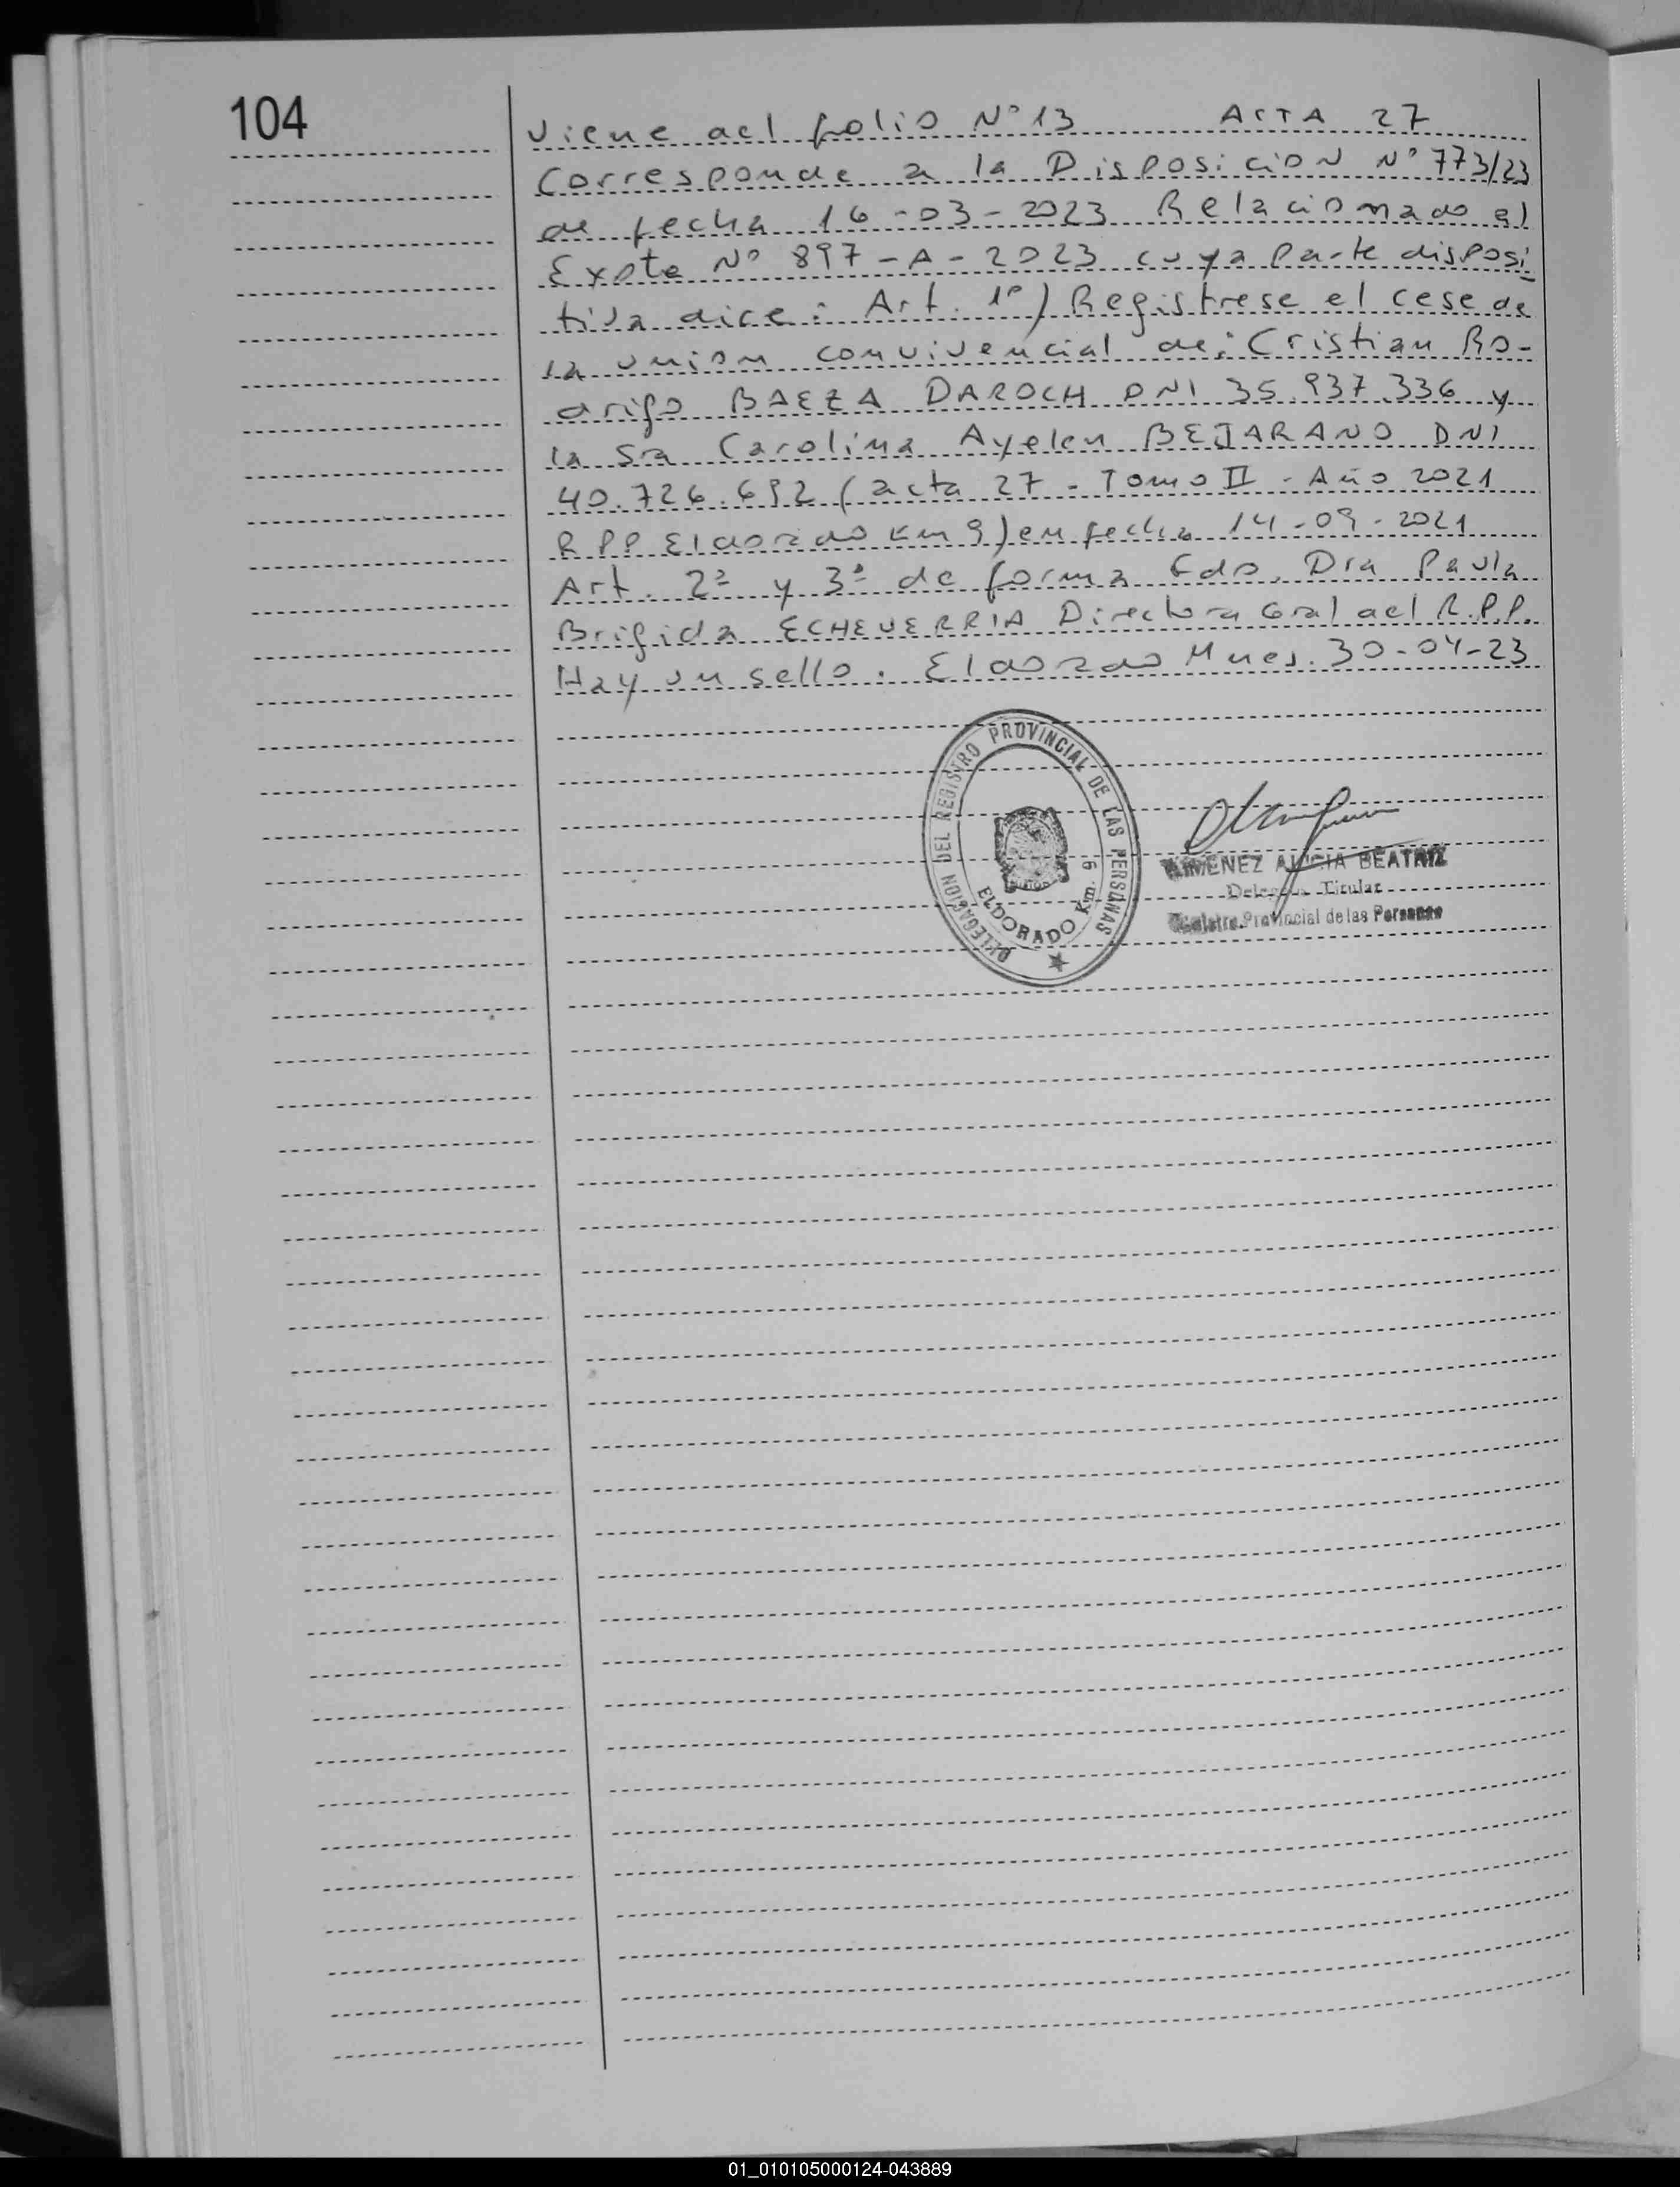 104
Viene del folio N° 13 ACTA 27
Corresponde a la Disposición N° 773/23
de fecha 16-03-2023 Relacionado al
Expte N° 897-A-2023 cuya parte disposi
tiva dice: Art. 1°) Registrese el cese de
la union convivencial de: Cristian Ro-
drigo BAEZA DAROCH DNI 35.937.336 y
la Sra Carolina Ayelen BEJARANO DNI
40.726.692 (acta 27 - Tomo II - Año 2021
RPP Eldorado Km 9) en fecha 14-09-2021
Art. 2° y 3° de forma Fdo. Dra Paula
Brigida ECHEVERRIA Directora Gral del R.P.P.
Hay un sello. Eldorado Mnes. 30-04-23
DELEGACION DEL REGISTRO PROVINCIAL DE LAS PERSONAS
ELDORADO Km. 9
XIMENEZ ALICIA BEATRIZ
Delegada Titular
Registro Provincial de las Personas
01_010105000124-043889